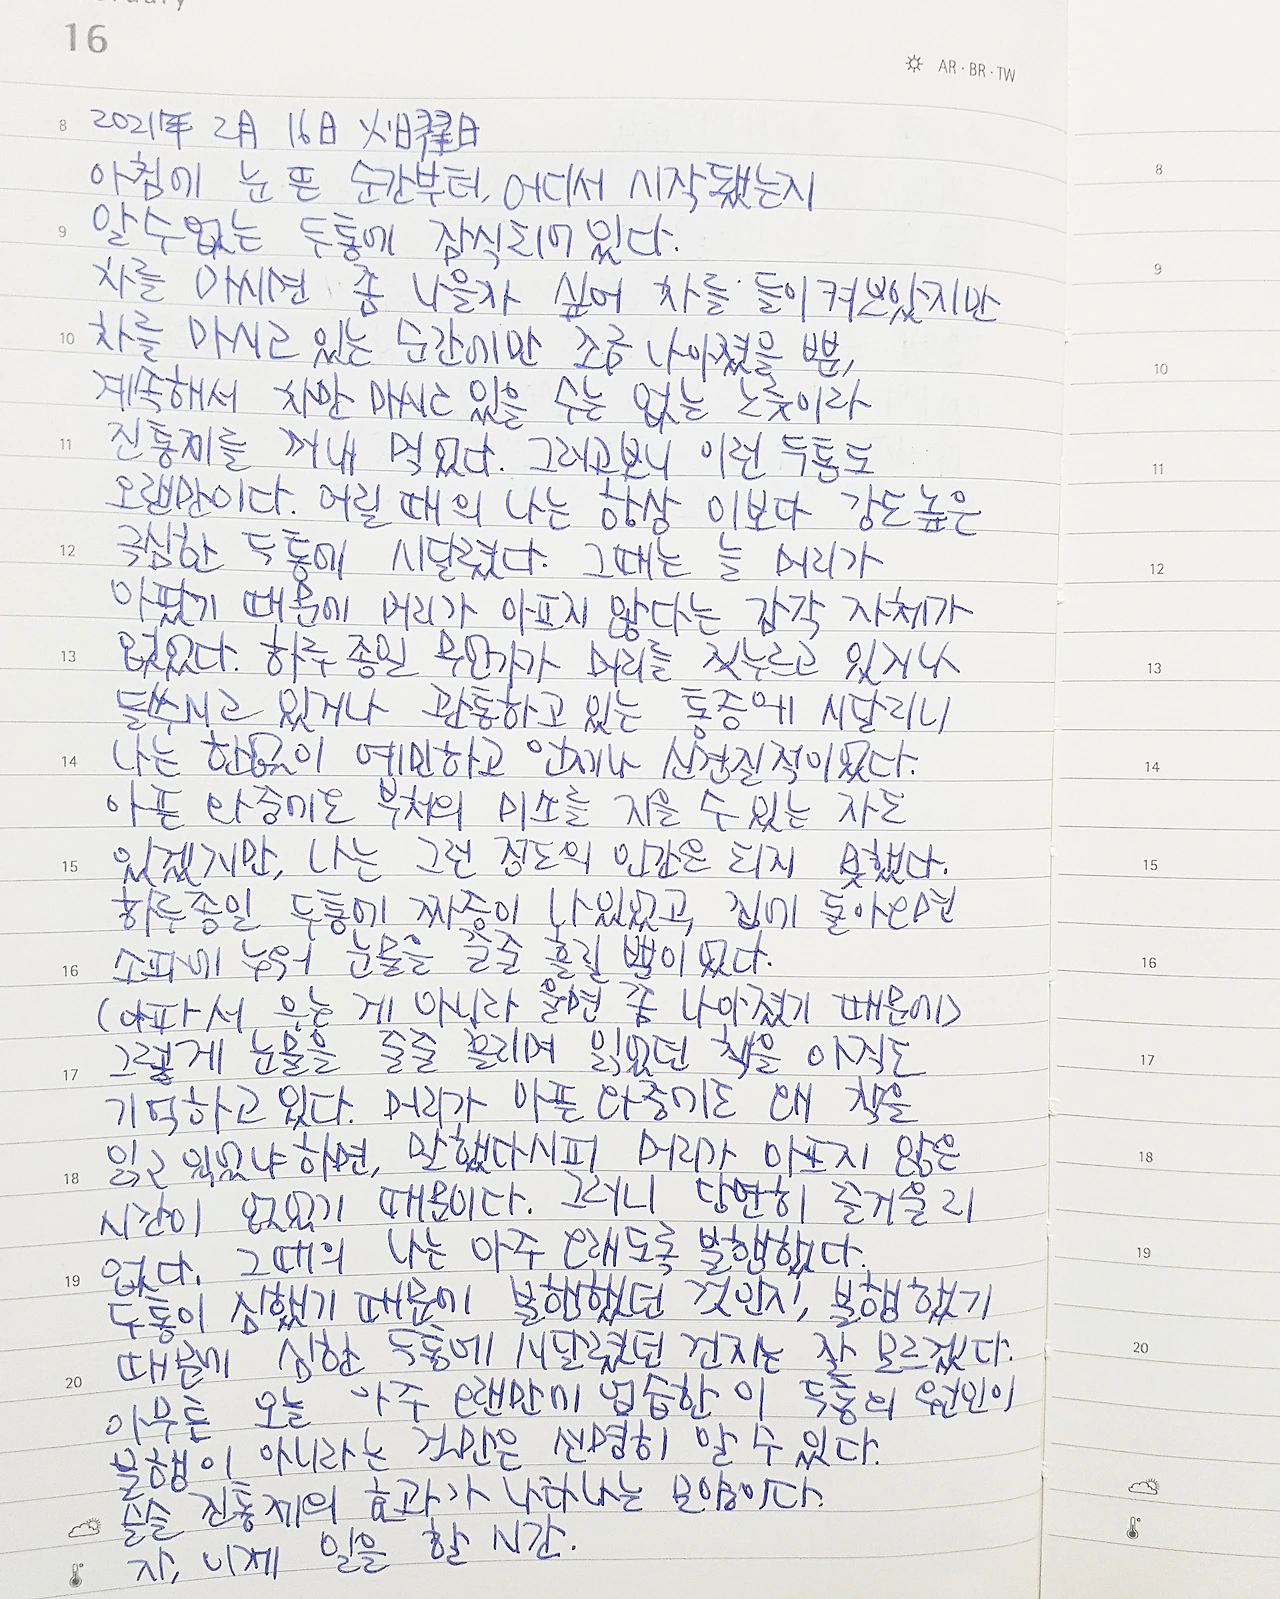 16
AR · BR · TW
8 2021年 2月 16日 火曜日
아침에 눈 뜬 순간부터, 어디서 시작됐는지
9 알 수 없는 두통에 잠식되어 있다.
차를 마시면 좀 나을까 싶어 차를 들이켜보았지만
10 차를 마시고 있는 순간에만 조금 나아졌을 뿐,
계속해서 차만 마시고 있을 수는 없는 노릇이라
11 진통제를 꺼내 먹었다. 그러고보니 이런 두통도
오랜만이다. 어릴 때의 나는 항상 이보다 강도높은
12 극심한 두통에 시달렸다. 그때는 늘 머리가
아팠기 때문에 머리가 아프지 않다는 감각 자체가
13 없었다. 하루 종일 무언가가 머리를 짓누르고 있거나
들쑤시고 있거나 관통하고 있는 통증에 시달리니
14 나는 한없이 예민하고 언제나 신경질적이었다.
아픈 와중에도 부처의 미소를 지을 수 있는 자도
15 있겠지만, 나는 그런 정도의 인간은 되지 못했다.
하루종일 두통에 짜증이 나있었고, 집에 돌아오면
16 소파에 누워 눈물을 줄줄 흘릴 뿐이었다.
(아파서 우는 게 아니라 울면 좀 나아졌기 때문에)
17 그렇게 눈물을 줄줄 흘리며 읽었던 책을 아직도
기억하고 있다. 머리가 아픈 와중에도 왜 책을
18 읽고 있었냐 하면, 말했다시피 머리가 아프지 않은
시간이 없었기 때문이다. 그러니 당연히 즐거울 리
19 없다. 그때의 나는 아주 오래도록 불행했다.
두통이 심했기 때문에 불행했던 것인지, 불행했기
20 때문에 심한 두통에 시달렸던 건지는 잘 모르겠다.
아무튼 오늘 아주 오랜만에 엄습한 이 두통의 원인이
불행이 아니라는 것만은 선명히 알 수 있다.
슬슬 진통제의 효과가 나타나는 모양이다.
자, 이제 일을 할 시간.
8
9
10
11
12
13
14
15
16
17
18
19
20